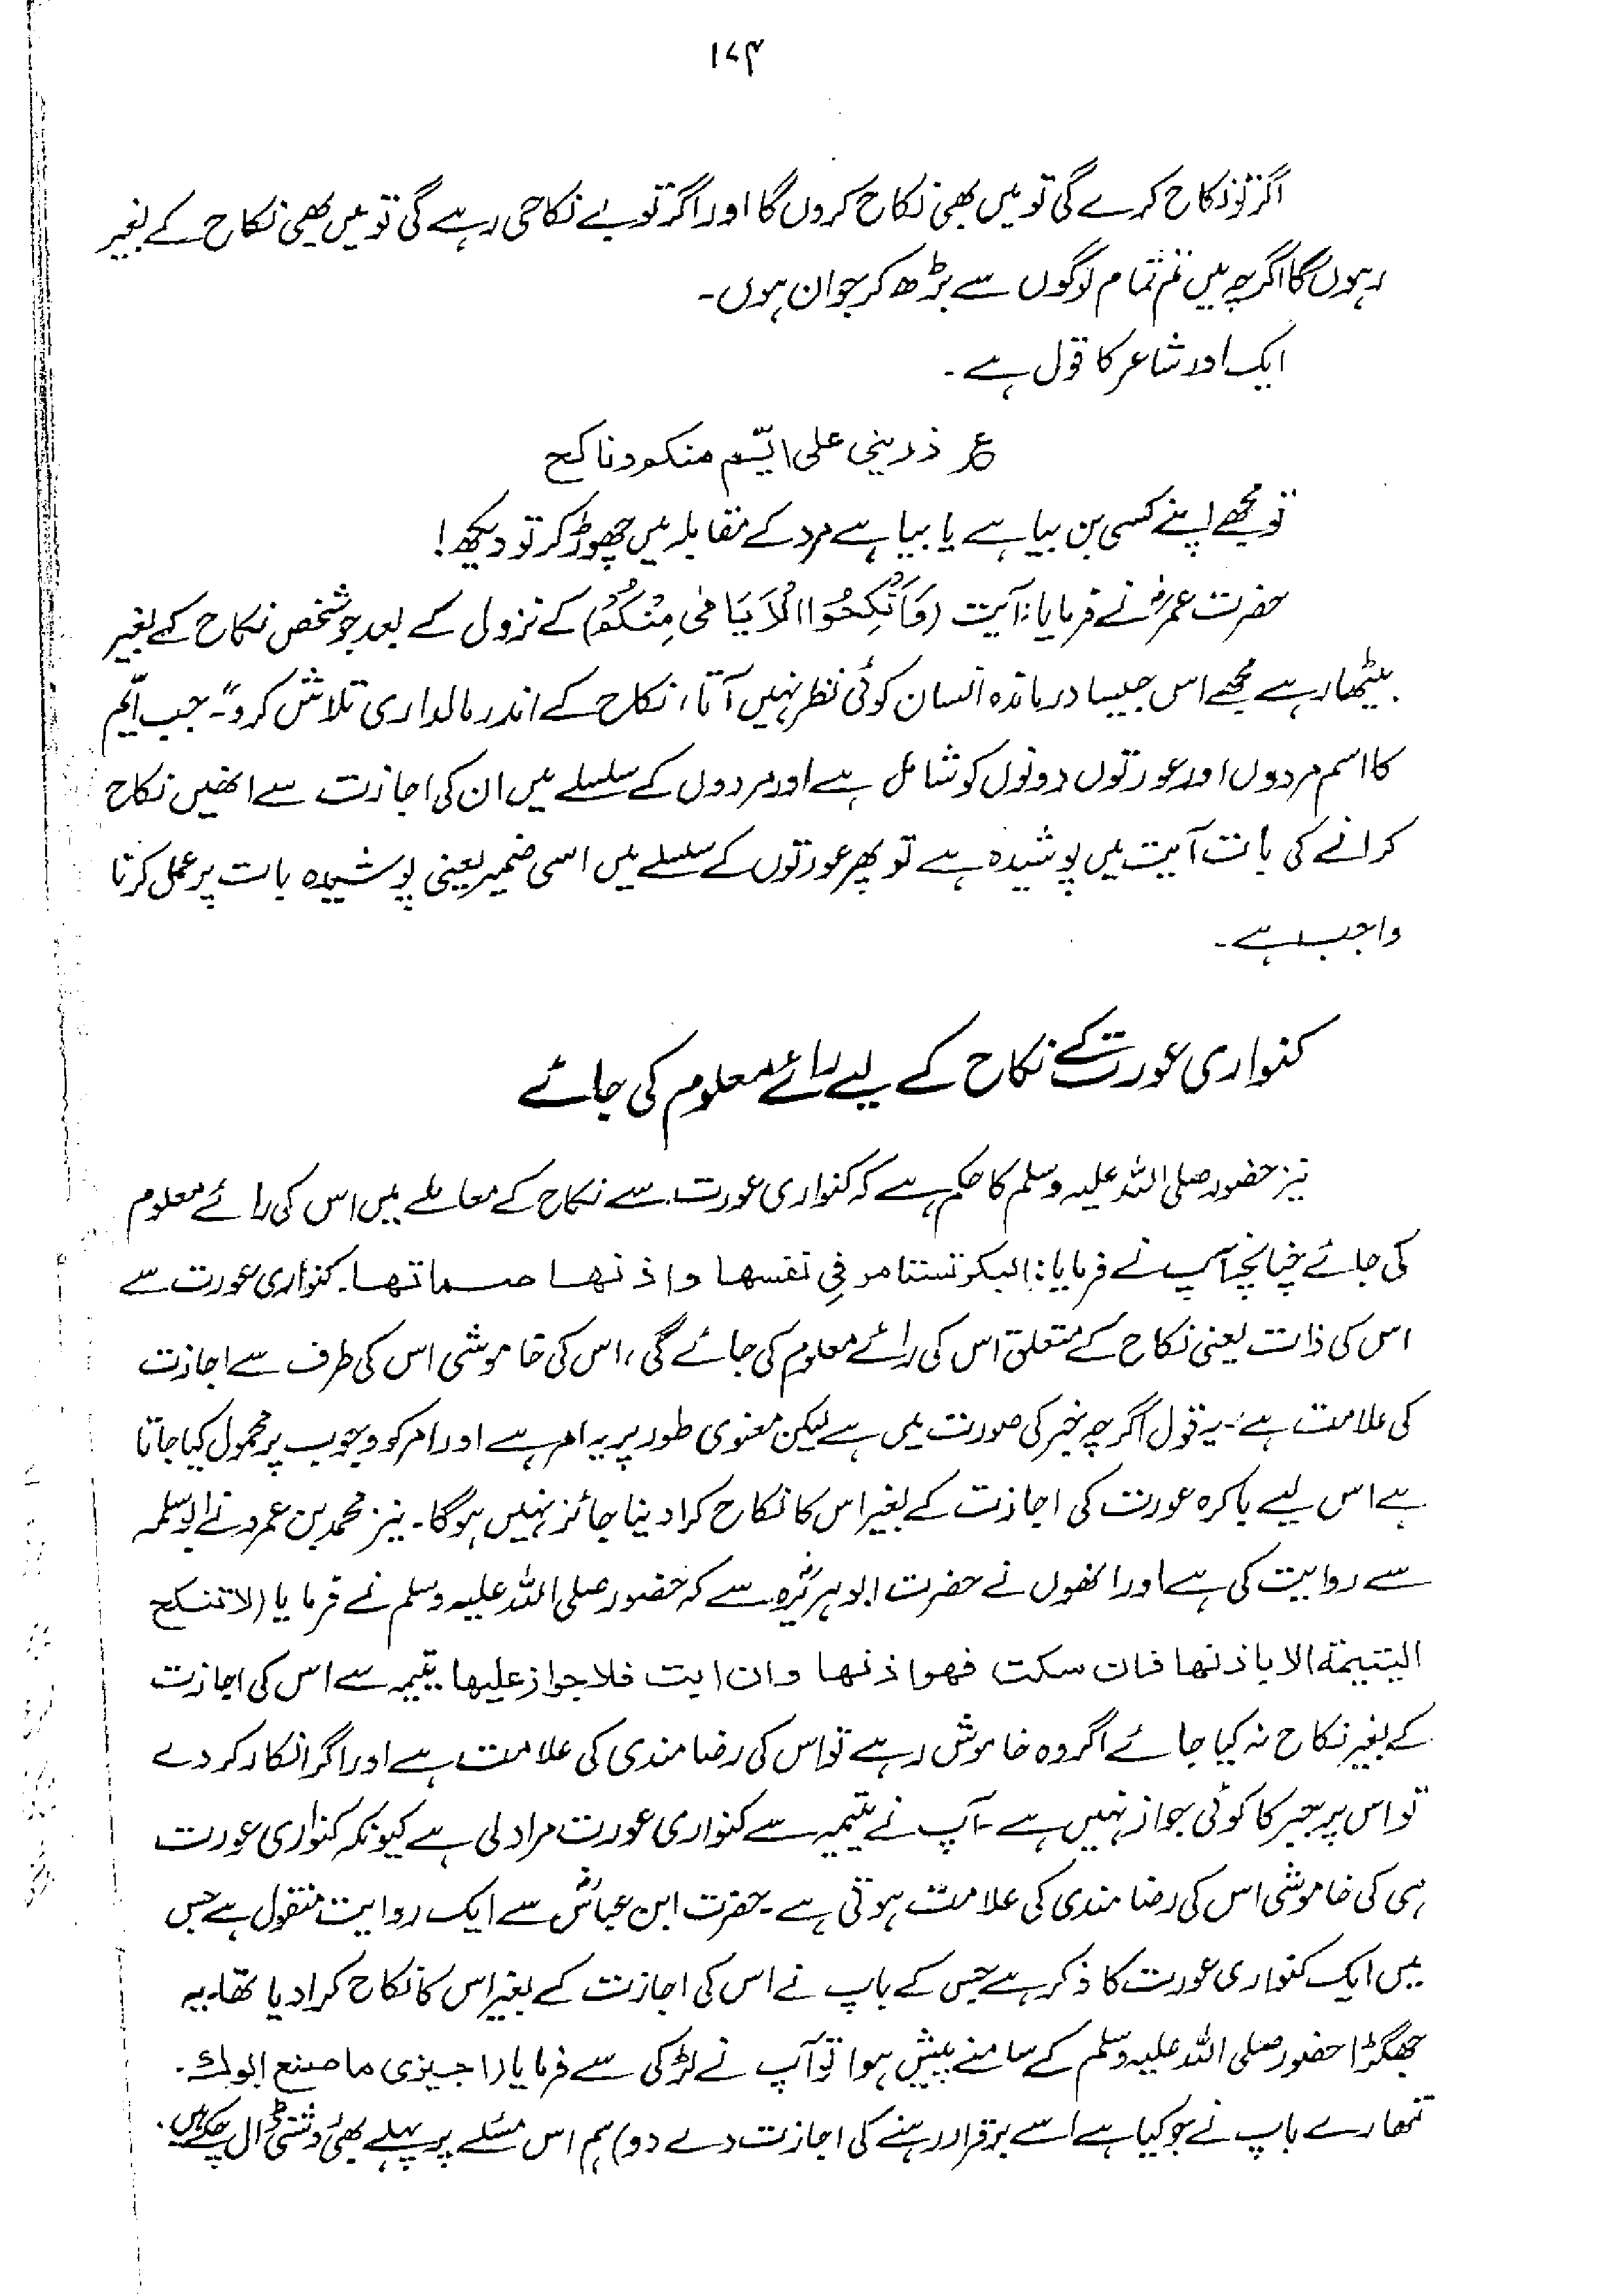 ۱۷۳
اگر تو نکاح کرے گی تو میں بھی نکاح کروں گا اور اگر تو بے نکاحی رہے گی تو میں بھی نکاح کے بغیر
رہوں گا اگرچہ میں تم تمام لوگوں سے بڑھ کر جوان ہوں۔
ایک اور شاعر کا قول ہے۔
ع ذرینی علی ایّم منکو وناکح
تو مجھے اپنے کسی بن بیاہے یا بیاہے مرد کے مقابلہ میں چھوڑ کر تو دیکھ!
حضرت عمرؓ نے فرمایا: آیت (وَاَنْكِحُوا الْاَيَامٰى مِنْكُمْ) کے نزول کے بعد جو شخص نکاح کے بغیر
بیٹھا رہے مجھے اس جیسا درماندہ انسان کوئی نظر نہیں آتا، نکاح کے اندر مالداری تلاش کرو"۔ جب ایّم
کا اسم مردوں اور عورتوں دونوں کو شامل ہے اور مردوں کے سلسلے میں ان کی اجازت سے انھیں نکاح
کرانے کی بات آیت میں پوشیدہ ہے تو پھر عورتوں کے سلسلے میں اسی ضمیر یعنی پوشیدہ بات پر عمل کرنا
واجب ہے۔
کنواری عورت کے نکاح کے لیے رائے معلوم کی جائے
نیز حضور صلی اللہ علیہ وسلم کا حکم ہے کہ کنواری عورت سے نکاح کے معاملے میں اس کی رائے معلوم
کی جائے چنانچہ آپ نے فرمایا: البکر تستامر فی نفسها واذنها صماتها۔ کنواری عورت سے
اس کی ذات یعنی نکاح کے متعلق اس کی رائے معلوم کی جائے گی، اس کی خاموشی اس کی طرف سے اجازت
کی علامت ہے۔ یہ قول اگرچہ خبر کی صورت میں ہے لیکن معنوی طور پر یہ امر ہے اور امر کو وجوب پر محمول کیا جاتا
ہے اس لیے باکرہ عورت کی اجازت کے بغیر اس کا نکاح کرا دینا جائز نہیں ہوگا۔ نیز محمد بن عمرو نے ابوسلمہ
سے روایت کی ہے اور انھوں نے حضرت ابوہریرہؓ سے کہ حضور صلی اللہ علیہ وسلم نے فرمایا (لا تنکح
الیتیمة الا باذنها فان سکت فهو اذنها وان ابت فلا جواز علیها یتیمہ سے اس کی اجازت
کے بغیر نکاح نہ کیا جائے اگر وہ خاموش رہے تو اس کی رضا مندی کی علامت ہے اور اگر انکار کر دے
تو اس پر جبر کا کوئی جواز نہیں ہے۔ آپ نے یتیمہ سے کنواری عورت مراد لی ہے کیونکہ کنواری عورت
ہی کی خاموشی اس کی رضا مندی کی علامت ہوتی ہے۔ حضرت ابن عباسؓ سے ایک روایت منقول ہے جس
میں ایک کنواری عورت کا ذکر ہے جس کے باپ نے اس کی اجازت کے بغیر اس کا نکاح کرا دیا تھا۔ یہ
جھگڑا حضور صلی اللہ علیہ وسلم کے سامنے پیش ہوا تو آپ نے لڑکی سے فرمایا (اجیزی ما صنع ابوك۔
تمھارے باپ نے جو کیا ہے اسے برقرار رہنے کی اجازت دے دو) ہم اس مسئلے پر پہلے بھی روشنی ڈال چکے ہیں۔